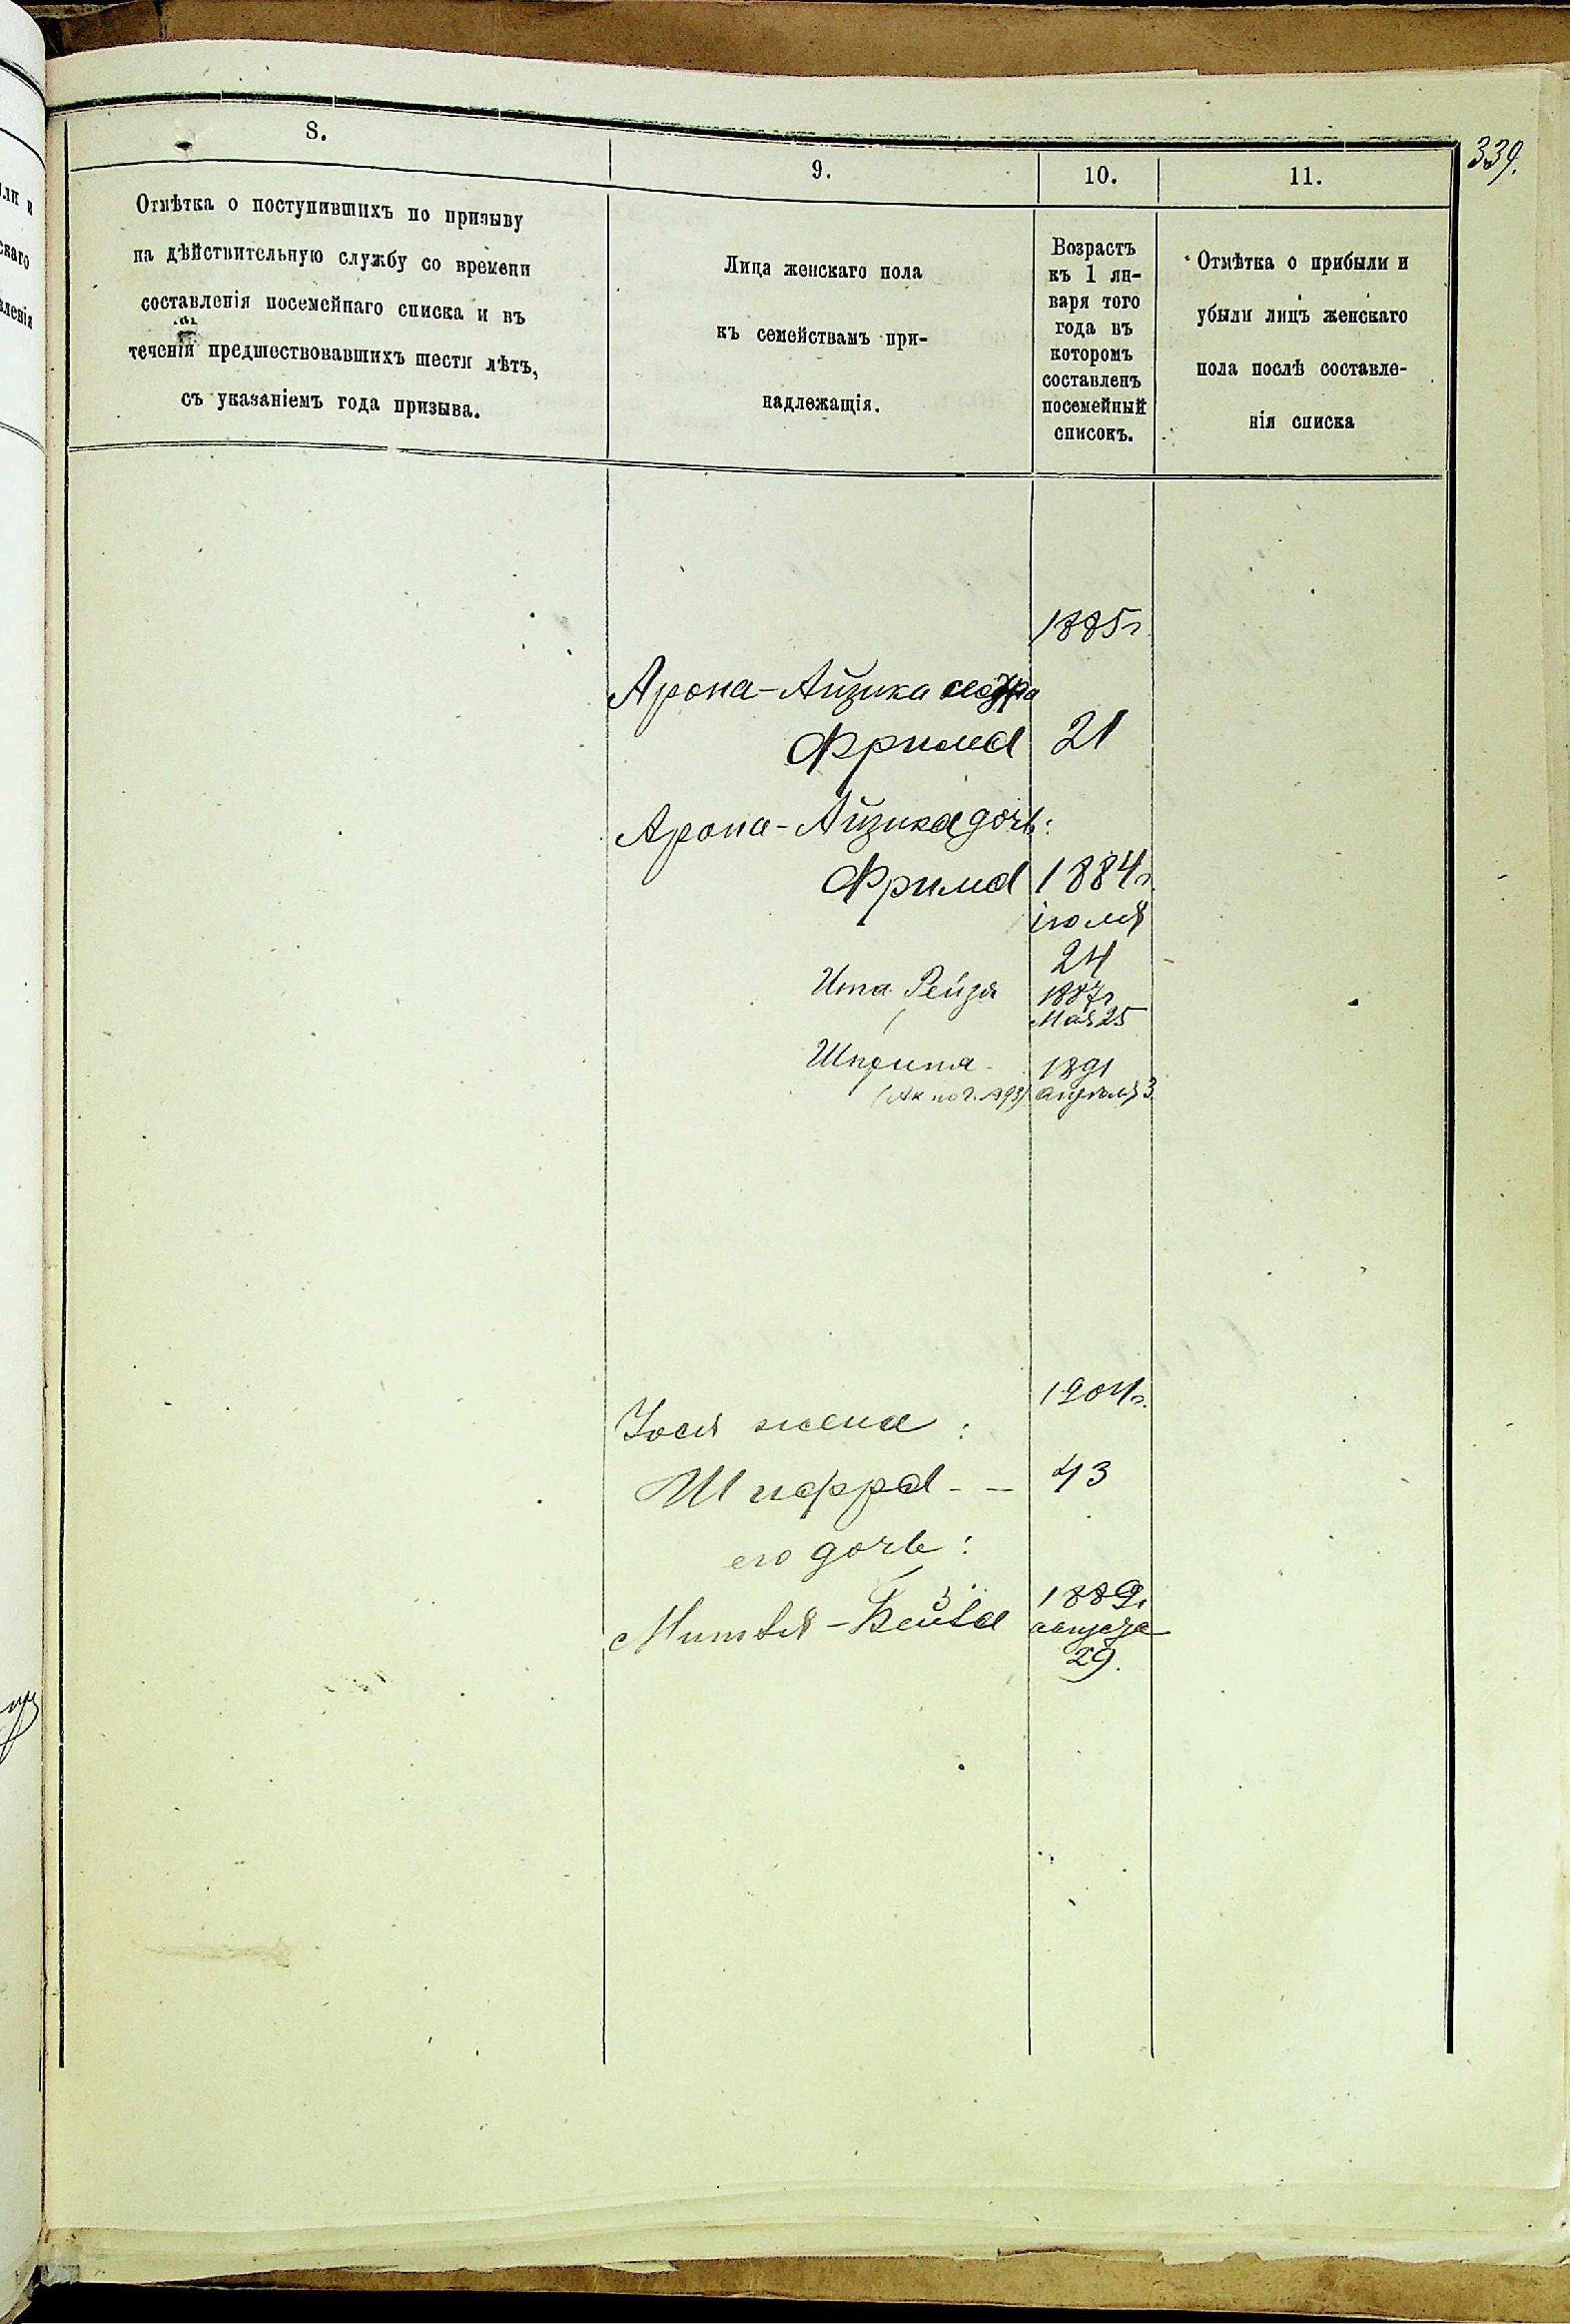 339.
8.
9.
10.
11.
Отмѣтка о поступившихъ по призыву
на дѣйствительную службу со времени
составленія посемейнаго списка и въ
теченіи предшествовавшихъ шести лѣтъ,
съ указаніемъ года призыва.
Лица женскаго пола
къ семействамъ при-
надлежащія.
Возрастъ
къ 1 ян-
варя того
года въ
которомъ
составленъ
посемейный
списокъ.
Отмѣтка о прибыли и
убыли лицъ женскаго
пола послѣ составле-
нія списка
1885г.
Арона-Айзика
Фрима 21
Арона-Айзика дочь:
Фрима 1884г.
іюля
24
Ита Рейзя 1887г
Мая 25
Шпринца 1891
апрѣля 3
1904г.
Іося жена:
Шифра - - 43
его дочь:
Митля-Бейла 1889г.
августа
29.